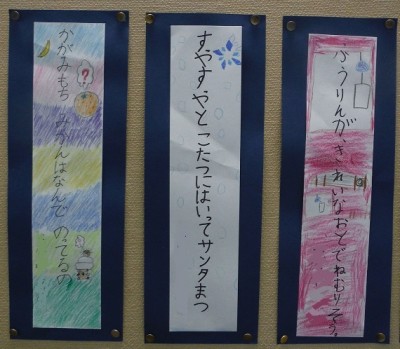 ふうりんが、きれいなおとでねむりそう。
すやすやとこたつにはいってサンタまつ
かがみもち みかんはなんで のってるの
?